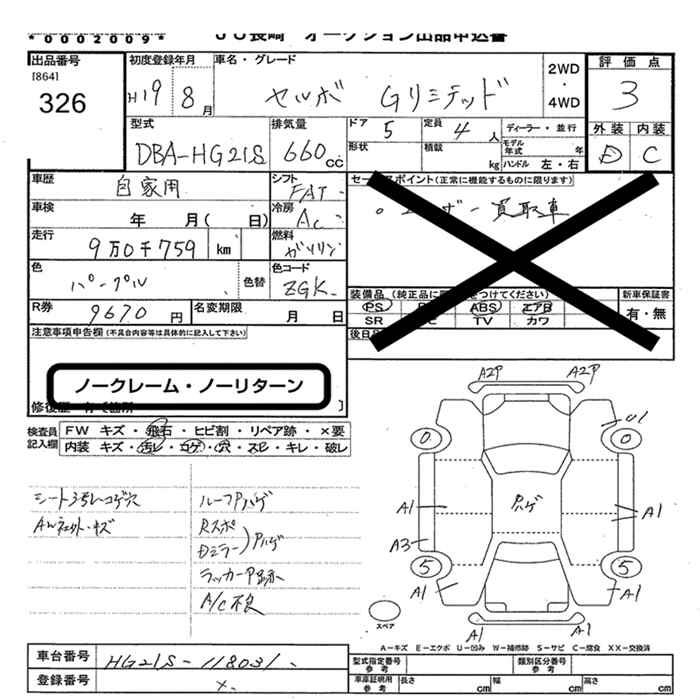 *0002009*
JU長崎 オークション出品申込書
出品番号
[864]
326
初度登録年月
H19 8月
車名・グレード
セルボ Gリミテッド
2WD
・
4WD
評価点
3
外装 内装
D C
型式
DBA-HG21S
排気量
660cc
ドア
5
定員
4人
形状
積載
kg
ディーラー・並行
モデル年式 年
ハンドル 左・右
車歴
自家用
シフト
FAT
車検
年 月( 日)
冷房
AC
走行
9万0千759 km
燃料
ガソリン
色
パープル
色替
色コード
ZGK
R券
9670円
名変期限
月 日
セールスポイント(正常に機能するものに限ります)
。ユーザー買取車
装備品
(PS) ABS エアB
SR TV カワ
新車保証書
有・無
注意事項申告欄(不具合内容等は具体的に記入して下さい)
ノークレーム・ノーリターン
検査員記入欄
FW キズ・飛石・ヒビ割・リペア跡・×要
内装 キズ・汚レ・コゲ・穴・スレ・キレ・破レ
シート3ヶ所コゲ穴
ルーフPハゲ
Rスポ
Dミラー)Pハゲ
ラッカーP跡
A/C不良
A2P A2P
U1
0 0
A1 Pハゲ A1
A3
5 5
A1 A1
A1 A1
スペア
A-キズ E-エクボ U-凹み W-補修跡 S-サビ C-腐食 XX-交換済
車台番号
HG21S-118031
登録番号
×
型式指定番号 参考
類別区分番号 参考
車庫証明用 参考
長さ cm
幅 cm
高さ cm